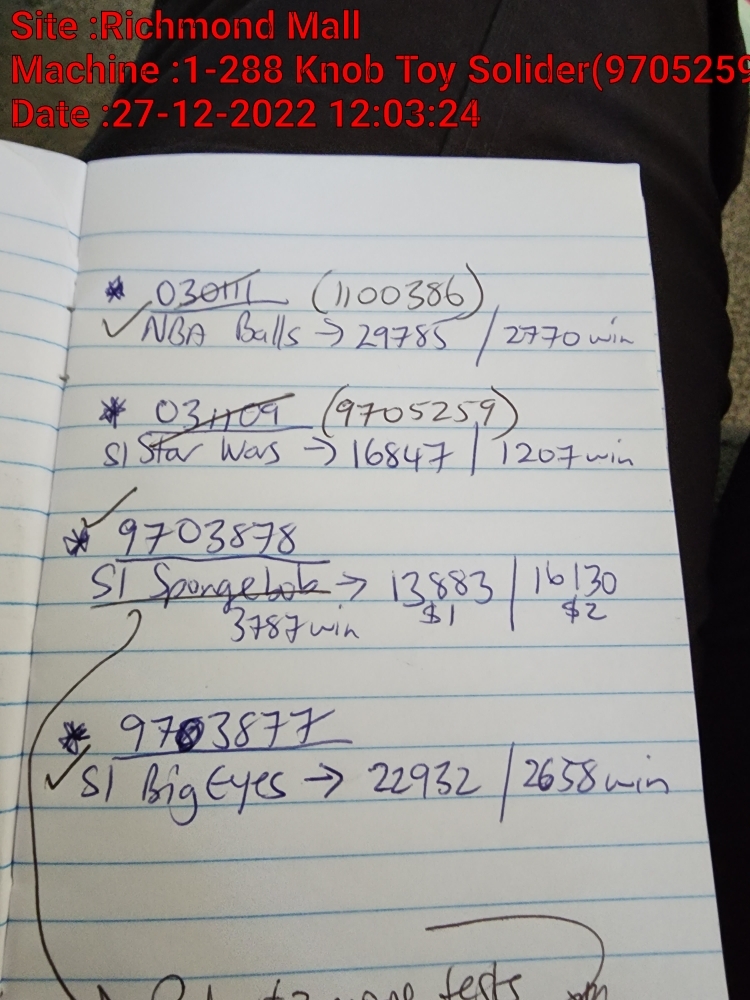 Site :Richmond Mall
Machine :1-288 Knob Toy Solider(9705259
Date :27-12-2022 12:03:24
* 030111 (1100386)
✓ NBA Balls → 29785 / 2770 win
* 031109 (9705259)
SI Star Wars → 16847 | 1207 win
✓
* 9703878
SI Spongebob → 13883 | 16130
3787 win $1 $2
* 9703877
✓ SI Big Eyes → 22932 / 2658 win
tests